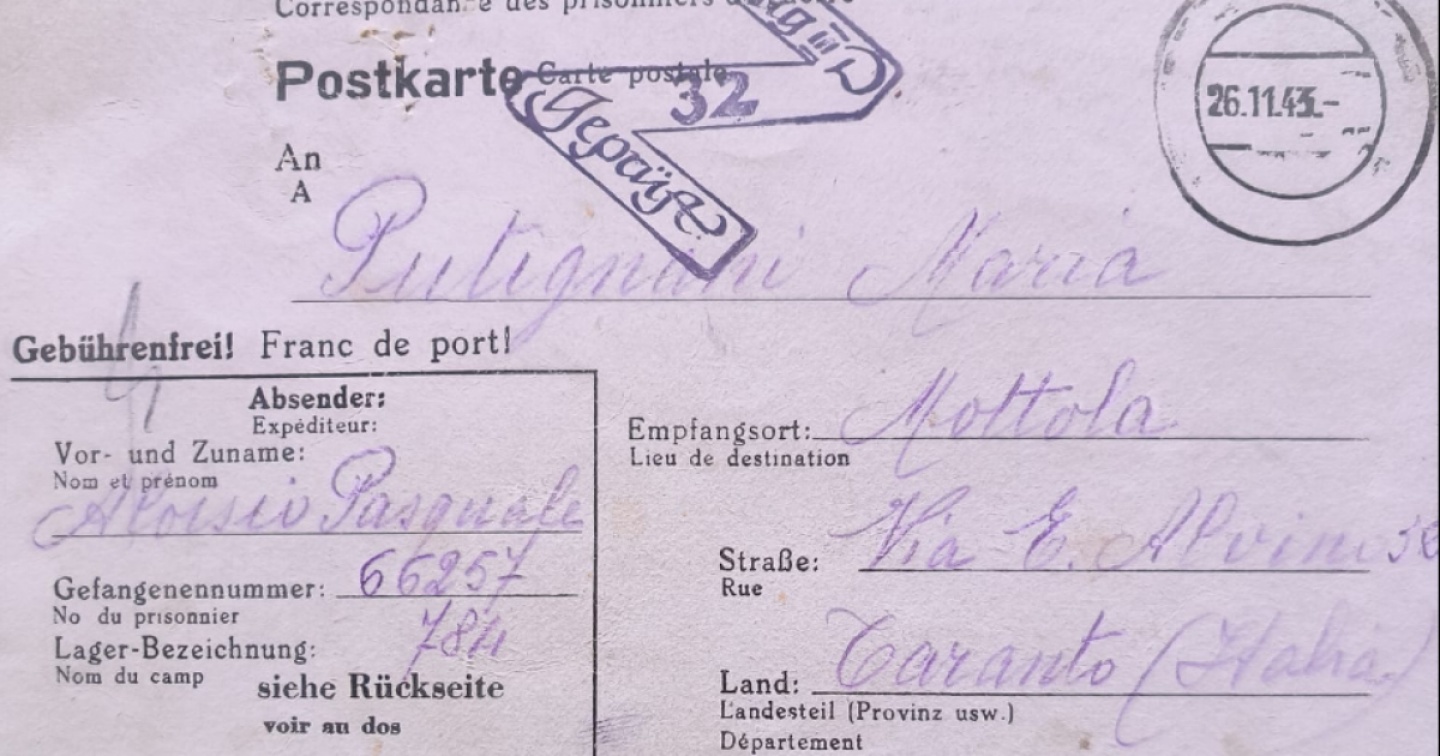 Correspondance des prisonniers de guerre
Postkarte Carte postale
32
Geprüft
26.11.43.-
An
A
Putignani Maria
Gebührenfrei! Franc de port!
Absender:
Expéditeur:
Vor- und Zuname:
Nom et prénom
Aloisio Pasquale
Gefangenennummer: 66257
No du prisonnier
784
Lager-Bezeichnung:
Nom du camp
siehe Rückseite
voir au dos
Empfangsort: Mottola
Lieu de destination
Straße: Via E. Alvini
Rue
Taranto (Italia)
Land:
Landesteil (Provinz usw.)
Département